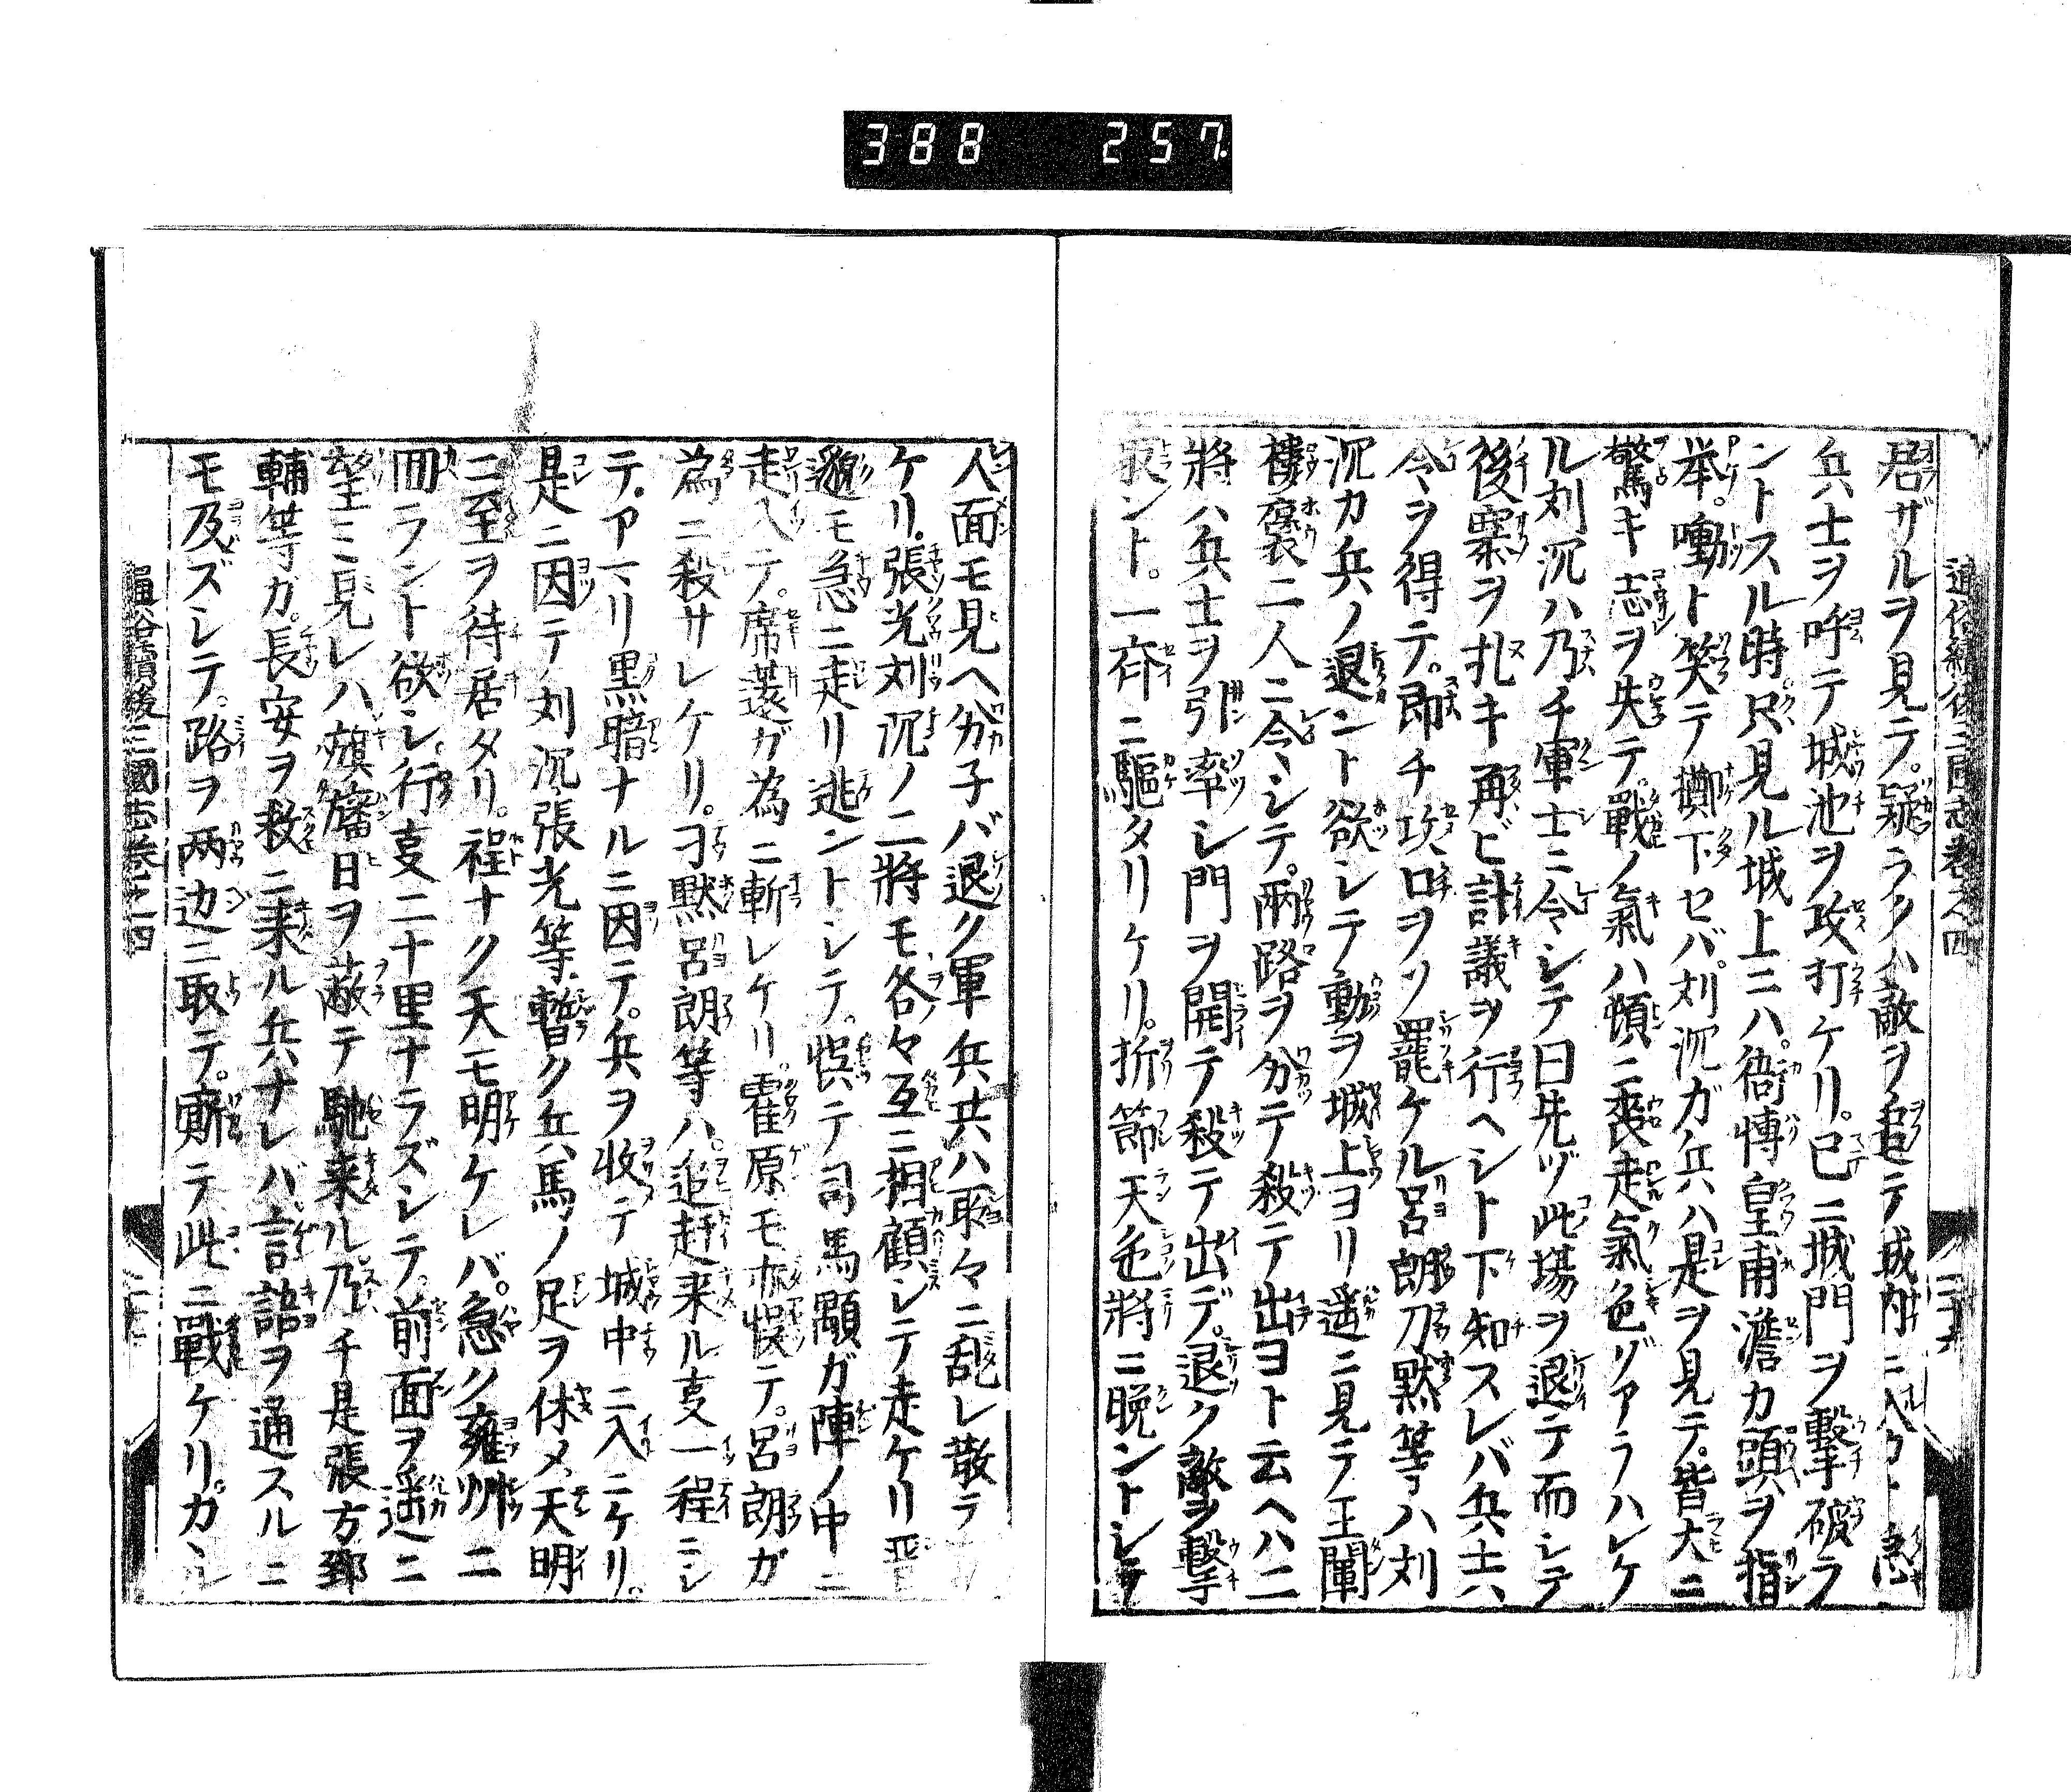 388 257.
通俗續後三國志卷之四
居ザルヲ見テ。疑ラクハ敵ヲ追テ城内ニ入ウト急
兵士ヲ呼テ城池ヲ攻打ケリ。已ニ城門ヲ擊破ラ
ントスル時只見ル城上ニハ。衙博皇甫澹カ頭ヲ指
举。嘞ト笑テ擲下セバ。刘沉ガ兵ハ是ヲ見テ。皆大ニ
驚キ志ヲ失テ。戰ノ氣ハ頓ニ喪走氣色ゾアラハレケ
ル刘沉ハ乃チ軍士ニ令シテ曰先ヅ此場ヲ退テ而シテ
後寨ヲ扎キ再ビ計議ヲ行ヘシト下知スレバ兵士ハ
令ヲ得テ。即チ攻口ヲソ罷ケル呂朗刀黙等ハ刘
沉カ兵ノ退ント欲シテ動ヲ城上ヨリ遥ニ見テ王闡
樓褒二人ニ令シテ。兩路ヲ分テ殺テ出ヨト云ヘハ二
將ハ兵士ヲ引率シ門ヲ開テ殺テ出デ。退ク敵ヲ擊
取ント。一齐ニ驅タリケリ。折節天色將ニ晩ントシテ
人面モ見ヘ分子バ退ク軍兵共ハ取々ニ乱レ散テ
ケリ。張光刘沉ノ二將モ各々互ニ相顧シテ走ケリ
邈モ急ニ走リ逃ントシテ。悞テ司馬顒ガ陣ノ中ニ
走入テ。席薳ガ為ニ斬レケリ。霍原モ亦悞テ。呂朗ガ
為ニ殺サレケリ。刁黙呂朗等ハ。追赶来ル𠮷一程ニシ
テ。アマリ黒暗ナルニ因テ。兵ヲ收テ城中ニ入ニケリ。
是ニ因テ刘沉張光等暫ク兵馬ノ足ヲ休メ、天明
ニ至ヲ待居タリ。程ナク天モ明ケレバ。急ク雍州ニ
回ラント欲シ行二十里ナラズシテ。前面ヲ遥ニ
望ミ見レハ旗旛日ヲ蔽テ馳来ル乃チ是張方郅
輔等ガ。長安ヲ救ニ来ル兵ナレバ、言語ヲ通スルニ
モ及ズシテ。路ヲ两边ニ取テ。厮テ此ニ戰ケリ。カヽシ
通俗續後三國志卷之四
二十